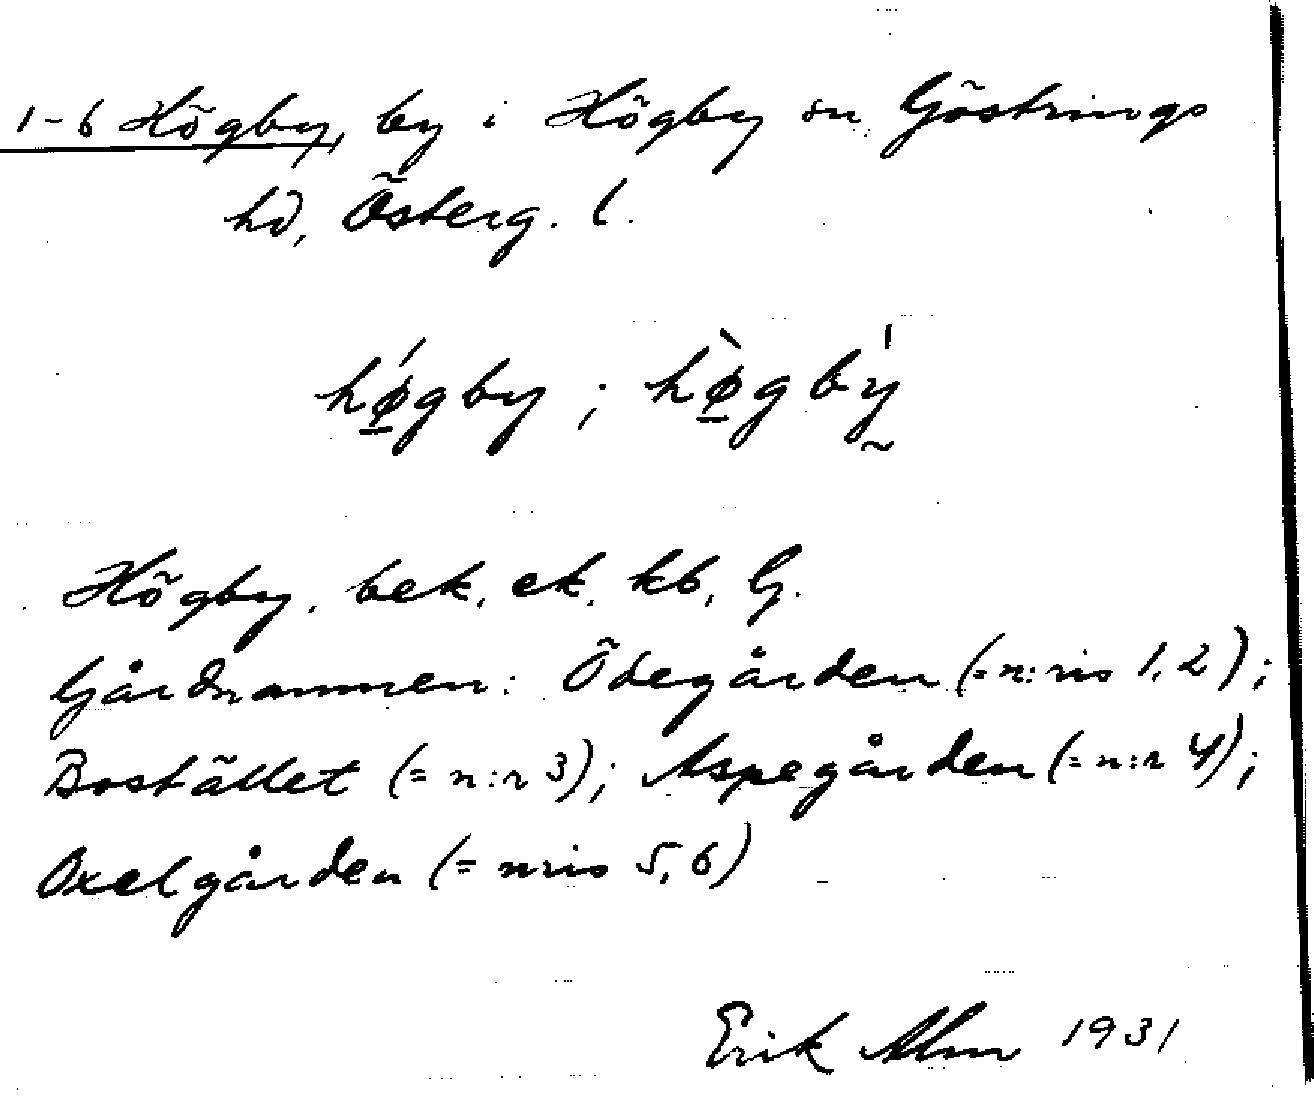 1-6 Högby, by i Högby sn, Göstrings
hd, Österg. l.
hǿgby ; hø̀gbý
Högby. bek, ek, kb, G.
Gårdnamnen: Ödegården (= n:ris 1, 2);
Bostället (= n:r 3); Aspegården (= n:r 4);
Oxelgården (= n:ris 5, 6)
Erik Alm 1931